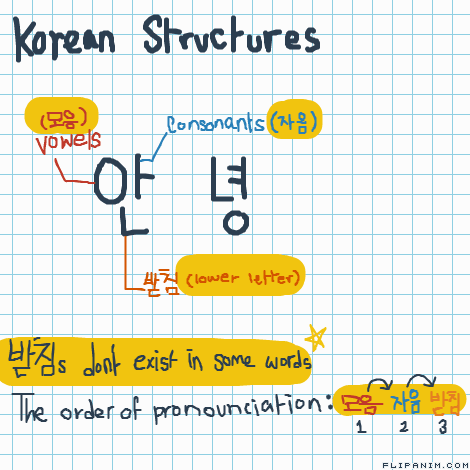 Korean Structures
(모음)
Vowels
Consonants (자음)
안녕
받침 (lower letter)
받침s dont exist in some words
The order of pronounciation: 모음 자음 받침
1 2 3
FLIPANIM.COM